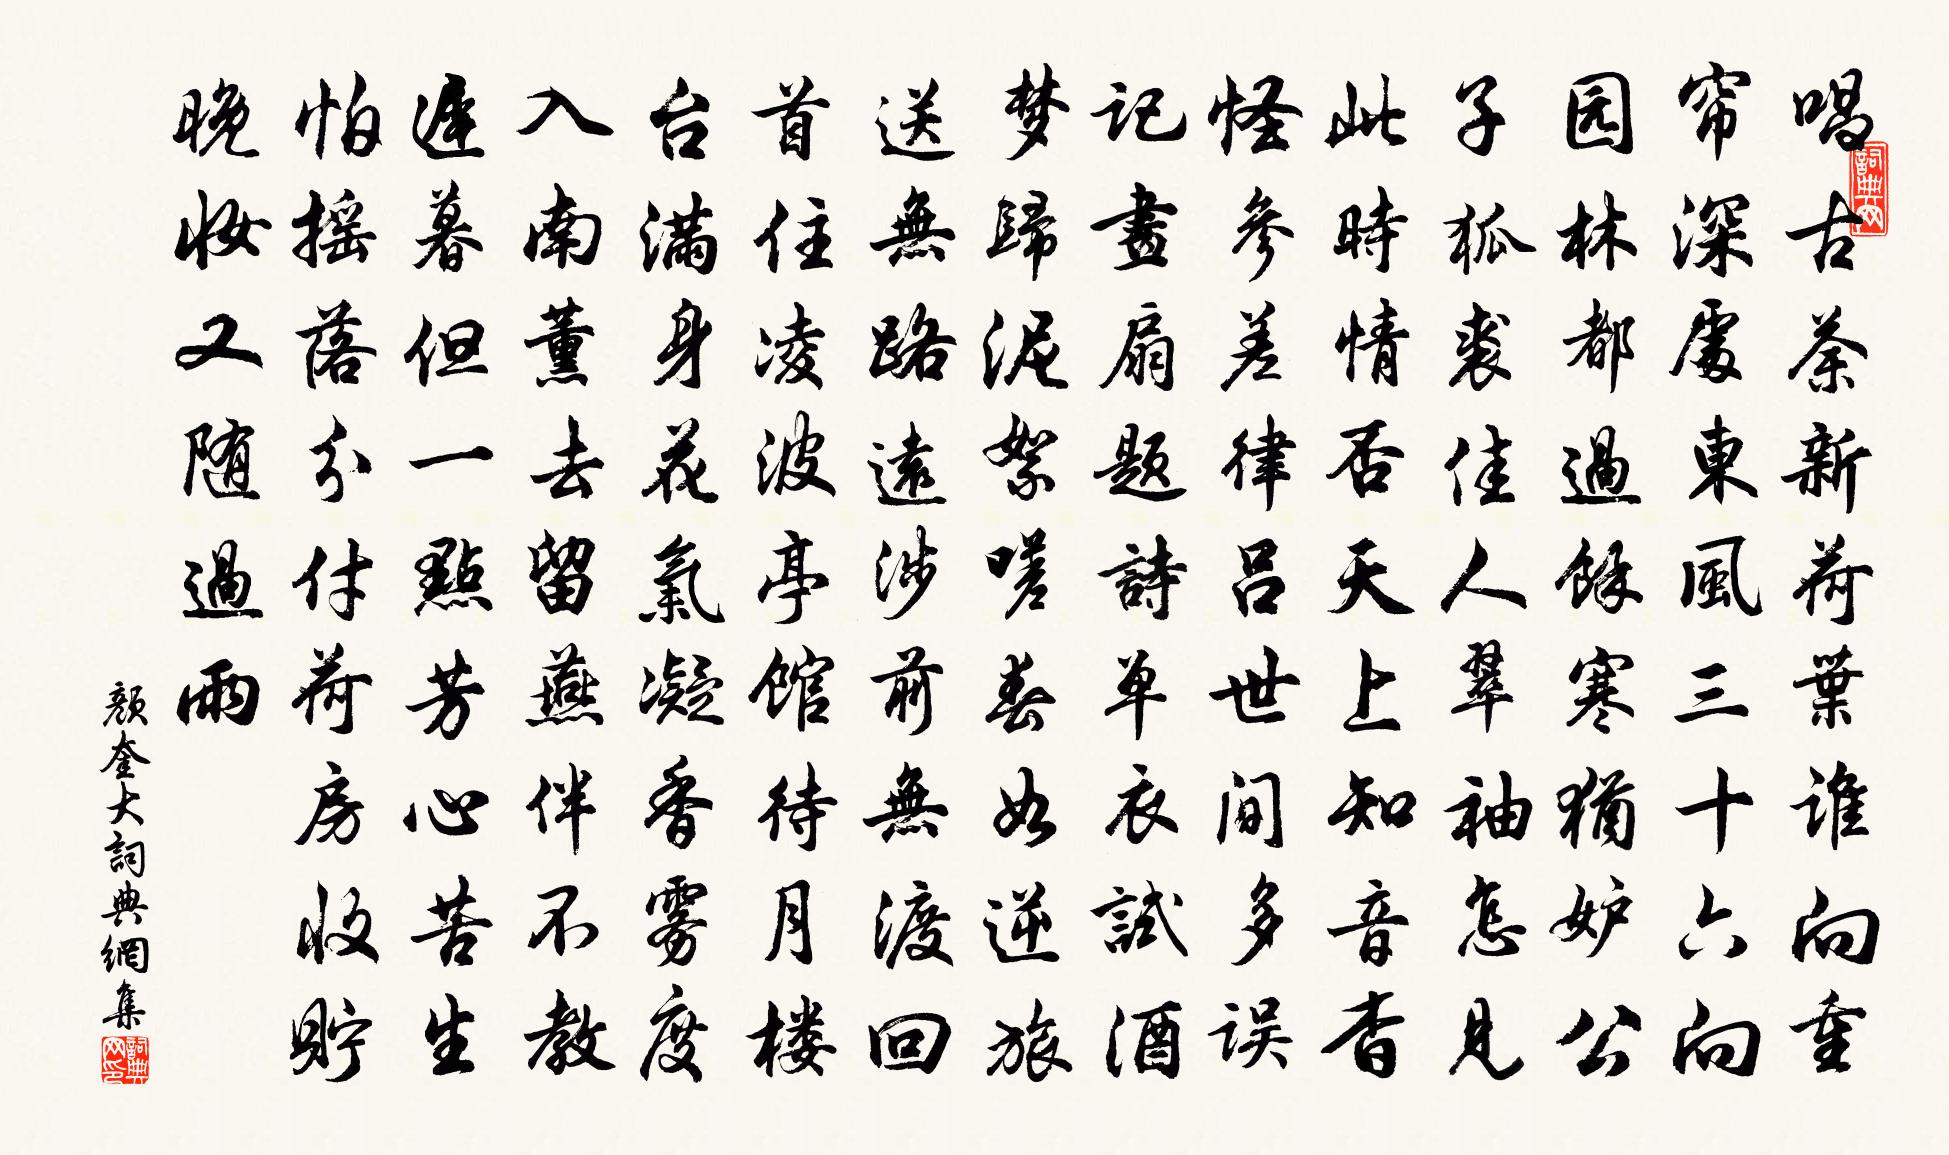 唱古荼新荷葉谁向重
帘深處東風三十六向
园林都過餘寒猶妒公
子狐裘佳人翠袖怎見
此時情否天上知音杳
怪參差律吕世间多误
记畫扇题詩单衣試酒
梦歸泥絮嗟春如逆旅
送無路遠涉前無渡回
首住凌波亭馆待月楼
台满身花氣凝香雾度
入南薰去留燕伴不教
遲暮但一點芳心苦生
怕摇落分付荷房收貯
晚妆又随過雨
顔奎大詞典網集
詞典网
詞典网印